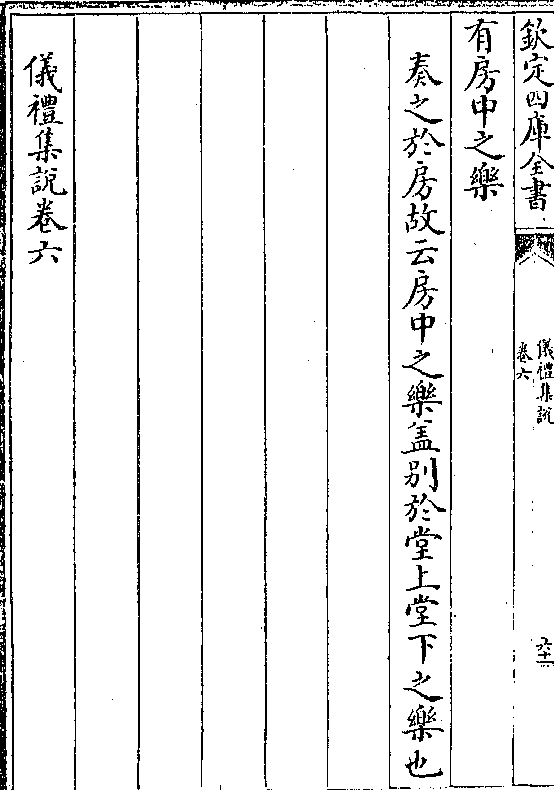 欽定四庫全書
儀禮集說
卷六
六十一
有房中之樂
奏之於房故云房中之樂盖别於堂上堂下之樂也
儀禮集說卷六